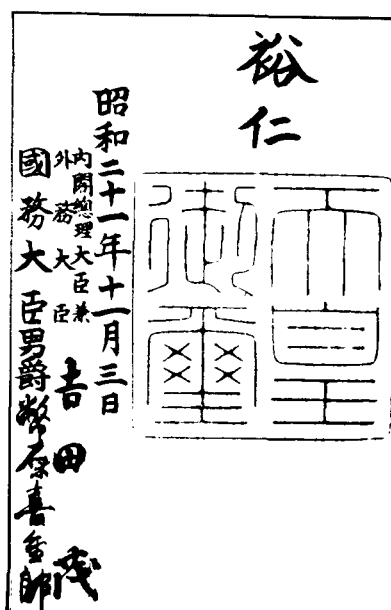 裕仁
天皇御璽
昭和二十一年十一月三日
內閣總理大臣兼
外務大臣
吉田茂
國務大臣男爵幣原喜重郎